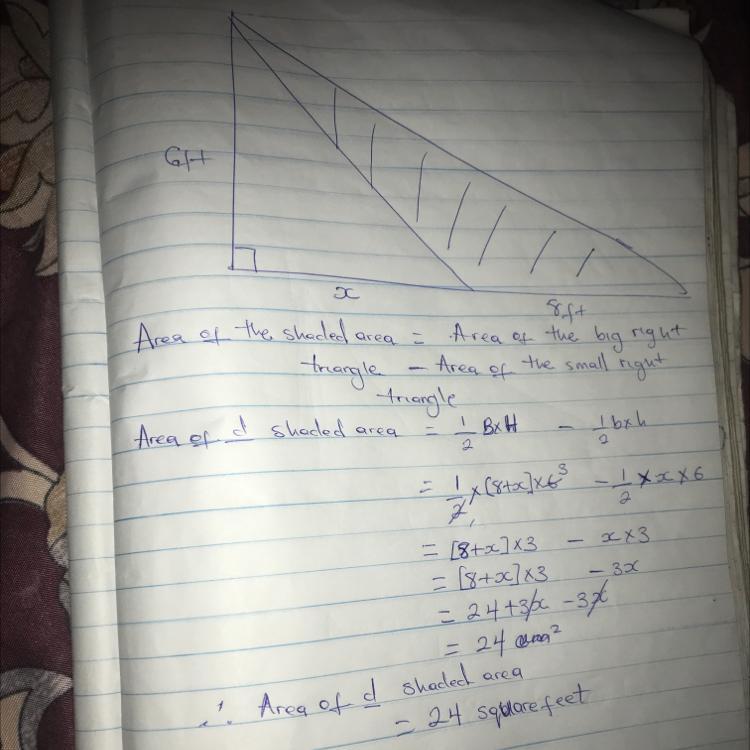 6ft
x
8ft
Area of the shaded area = Area of the big right
triangle - Area of the small right
triangle
Area of d shaded area = 1/2 B×H - 1/2 b×h
= 1/2 × [8+x] × 6 3 - 1/2 × x × 6
= [8+x] × 3 - x × 3
= [8+x] × 3 - 3x
= 24 + 3x - 3x
= 24 2
∴ Area of d shaded area
= 24 square feet